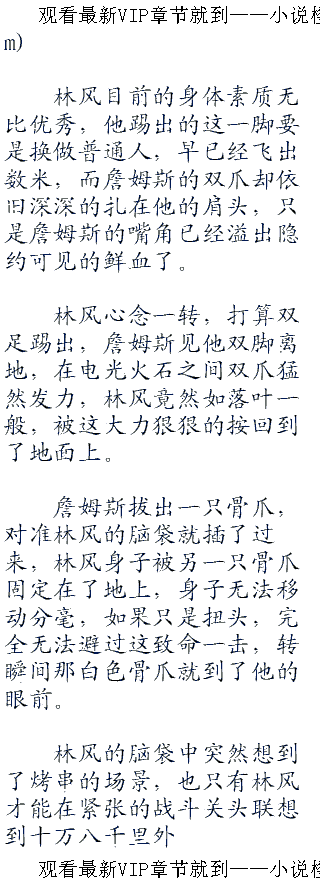 观看最新VIP章节就到——小说楼
m)
林风目前的身体素质无
比优秀，他踢出的这一脚要
是换做普通人，早已经飞出
数米，而詹姆斯的双爪却依
旧深深的扎在他的肩头，只
是詹姆斯的嘴角已经溢出隐
约可见的鲜血了。
林风心念一转，打算双
足踢出，詹姆斯见他双脚离
地，在电光火石之间双爪猛
然发力，林风竟然如落叶一
般，被这大力狠狠的按回到
了地面上。
詹姆斯拔出一只骨爪，
对准林风的脑袋就插了过
来，林风身子被另一只骨爪
固定在了地上，身子无法移
动分毫，如果只是扭头，完
全无法避过这致命一击，转
瞬间那白色骨爪就到了他的
眼前。
林风的脑袋中突然想到
了烤串的场景，也只有林风
才能在紧张的战斗关头联想
到十万八千里外
观看最新VIP章节就到——小说楼